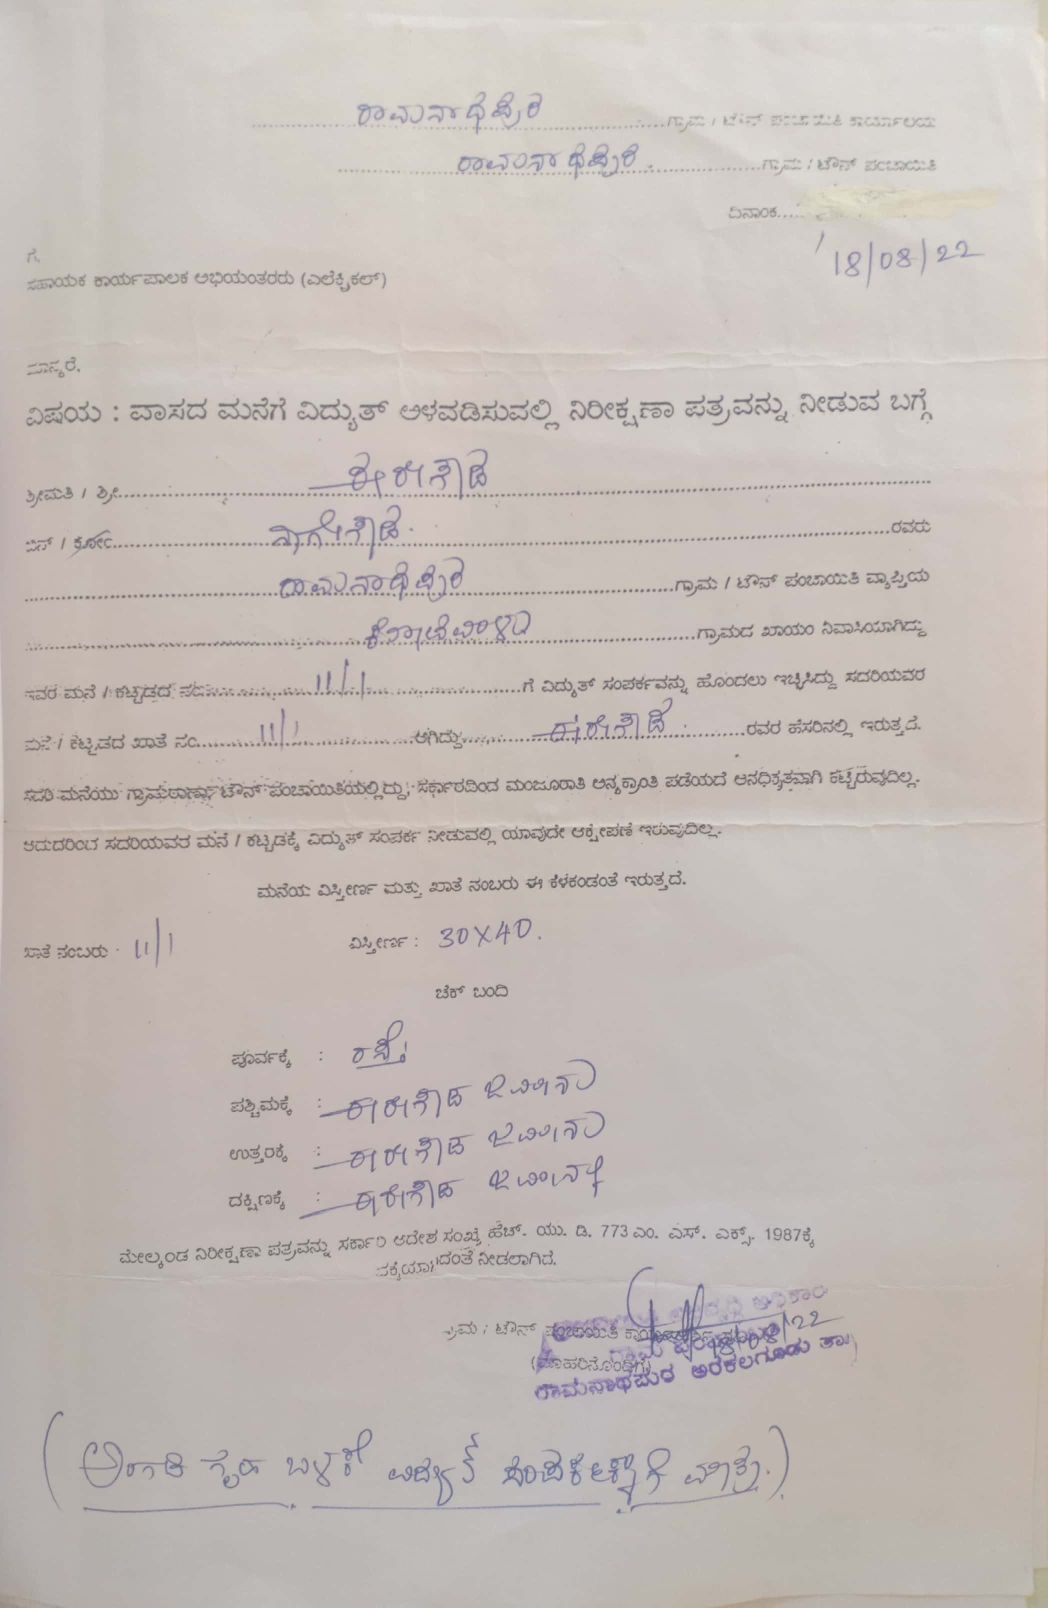 ರಾಮನಾಥಪುರ ಗ್ರಾಮ / ಟೌನ್ ಪಂಚಾಯಿತಿ ಕಾರ್ಯಾಲಯ
ರಾಮನಾಥಪುರ ಗ್ರಾಮ / ಟೌನ್ ಪಂಚಾಯಿತಿ
ದಿನಾಂಕ.....
18/08/22
ಗೆ,
ಸಹಾಯಕ ಕಾರ್ಯಪಾಲಕ ಅಭಿಯಂತರರು (ಎಲೆಕ್ಟ್ರಿಕಲ್)
ಮಾನ್ಯರೆ,
ವಿಷಯ : ವಾಸದ ಮನೆಗೆ ವಿದ್ಯುತ್ ಅಳವಡಿಸುವಲ್ಲಿ ನಿರೀಕ್ಷಣಾ ಪತ್ರವನ್ನು ನೀಡುವ ಬಗ್ಗೆ
ಶ್ರೀಮತಿ / ಶ್ರೀ ಈರೇಗೌಡ
ಬಿನ್ / ಕೋಂ ನಾಗೇಗೌಡ. ರವರು
ರಾಮನಾಥಪುರ ಗ್ರಾಮ / ಟೌನ್ ಪಂಚಾಯಿತಿ ವ್ಯಾಪ್ತಿಯ
ಗ್ರಾಮದ ಖಾಯಂ ನಿವಾಸಿಯಾಗಿದ್ದು
ಇವರ ಮನೆ / ಕಟ್ಟಡದ ನಂ 11/1 ಗೆ ವಿದ್ಯುತ್ ಸಂಪರ್ಕವನ್ನು ಹೊಂದಲು ಇಚ್ಛಿಸಿದ್ದು ಸದರಿಯವರ
ಮನೆ / ಕಟ್ಟಡದ ಖಾತೆ ನಂ 11/1 ಆಗಿದ್ದು ಈರೇಗೌಡ ರವರ ಹೆಸರಿನಲ್ಲಿ ಇರುತ್ತದೆ.
ಸದರಿ ಮನೆಯು ಗ್ರಾಮಠಾಣಾ/ಟೌನ್ ಪಂಚಾಯಿತಿಯಲ್ಲಿದ್ದು, ಸರ್ಕಾರದಿಂದ ಮಂಜೂರಾತಿ ಅನ್ಯಕ್ರಾಂತಿ ಪಡೆಯದೆ ಅನಧಿಕೃತವಾಗಿ ಕಟ್ಟಿರುವುದಿಲ್ಲ.
ಆದುದರಿಂದ ಸದರಿಯವರ ಮನೆ / ಕಟ್ಟಡಕ್ಕೆ ವಿದ್ಯುತ್ ಸಂಪರ್ಕ ನೀಡುವಲ್ಲಿ ಯಾವುದೇ ಆಕ್ಷೇಪಣೆ ಇರುವುದಿಲ್ಲ.
ಮನೆಯ ವಿಸ್ತೀರ್ಣ ಮತ್ತು ಖಾತೆ ನಂಬರು ಈ ಕೆಳಕಂಡಂತೆ ಇರುತ್ತದೆ.
ಖಾತೆ ನಂಬರು : 11/1 ವಿಸ್ತೀರ್ಣ : 30X40.
ಚೆಕ್ ಬಂದಿ
ಪೂರ್ವಕ್ಕೆ : ರಸ್ತೆ
ಪಶ್ಚಿಮಕ್ಕೆ : ಈರೇಗೌಡ ಜಮೀನು
ಉತ್ತರಕ್ಕೆ : ಈರೇಗೌಡ ಜಮೀನು
ದಕ್ಷಿಣಕ್ಕೆ : ಈರೇಗೌಡ ಜಮೀನು
ಮೇಲ್ಕಂಡ ನಿರೀಕ್ಷಣಾ ಪತ್ರವನ್ನು ಸರ್ಕಾರಿ ಆದೇಶ ಸಂಖ್ಯೆ ಹೆಚ್. ಯು. ಡಿ. 773 ಎಂ. ಎಸ್. ಎಕ್ಸ್. 1987ಕ್ಕೆ
ನೀಡಲಾಗಿದೆ.
ಗ್ರಾಮ / ಟೌನ್ ಪಂಚಾಯಿತಿ
(ಮೊಹರಿನೊಂದಿಗೆ) 18/08/22
ರಾಮನಾಥಪುರ ಅರಕಲಗೂಡು ತಾ||
(ಅಂಗಡಿ ಗೃಹ ಬಳಕೆ ವಿದ್ಯುತ್ ಸಂಪರ್ಕಕ್ಕಾಗಿ ಮಾತ್ರ.)